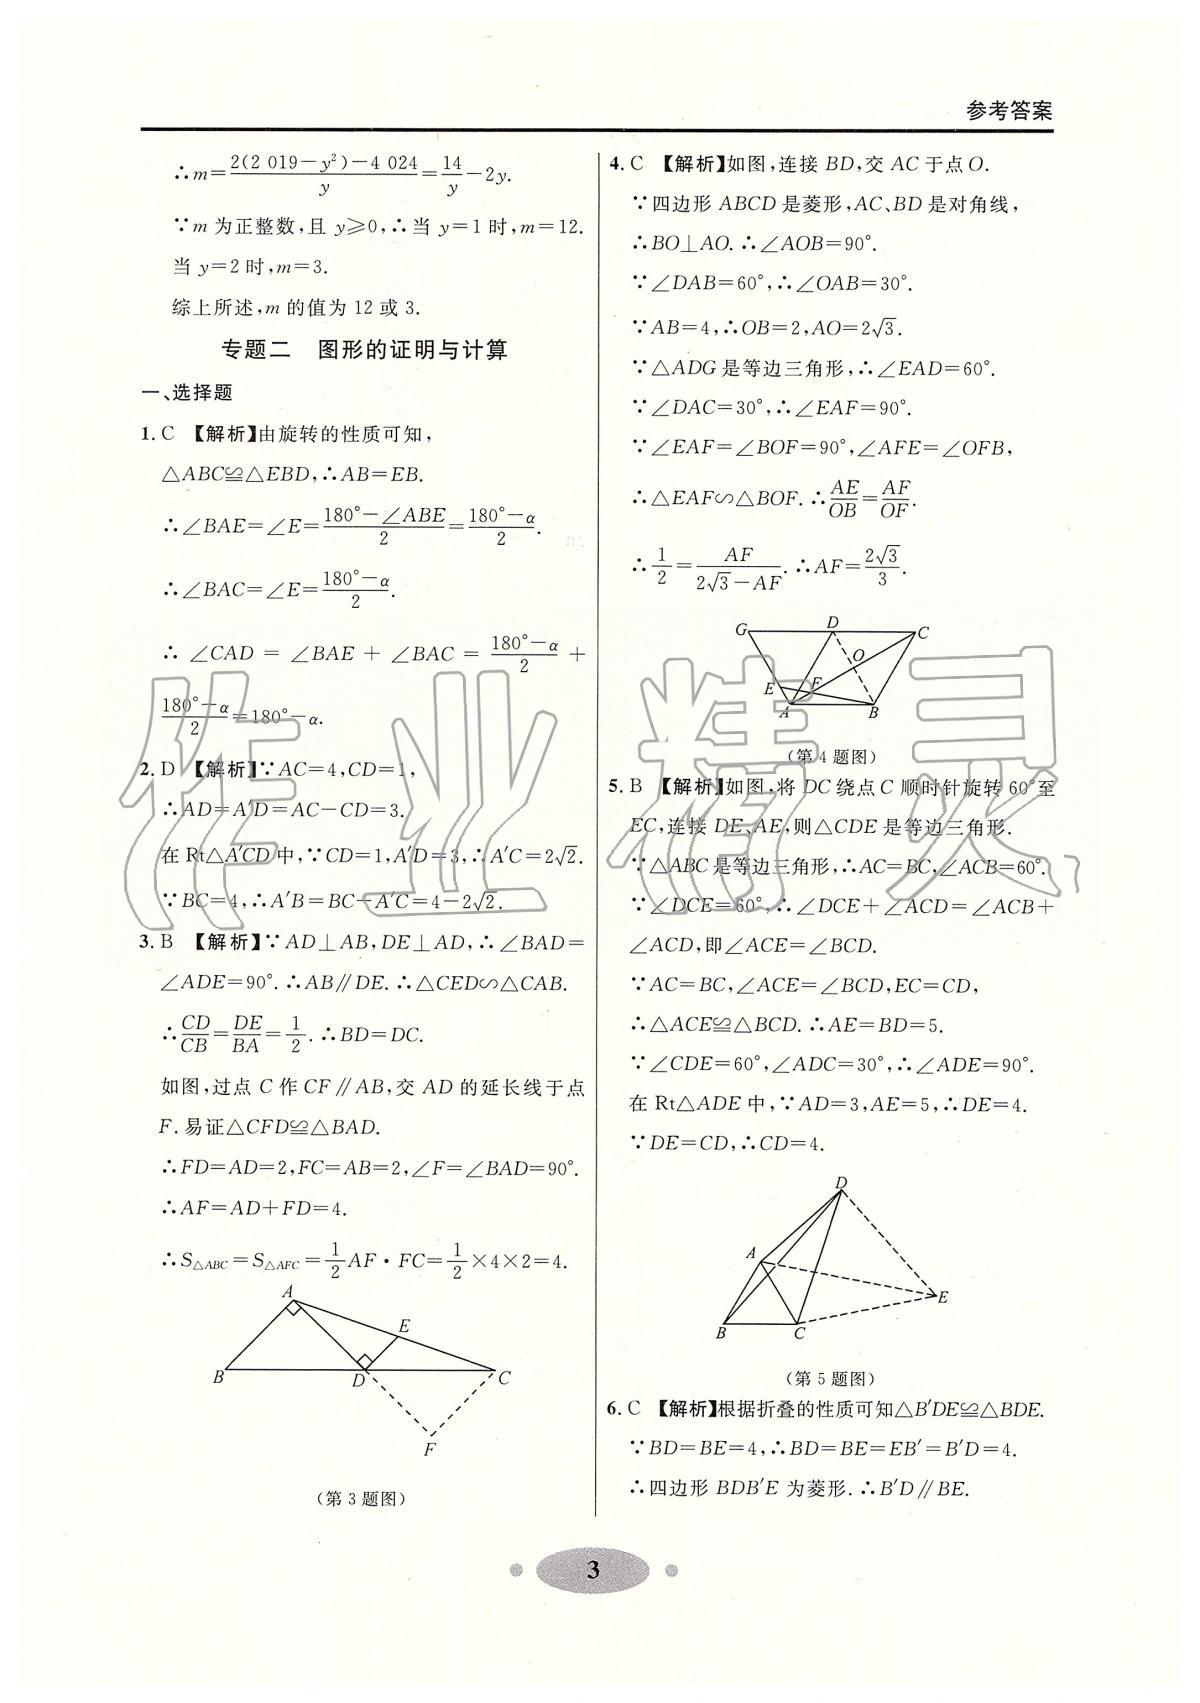 参考答案
∴m=2(2 019-y²)-4 024/y=14/y-2y.
∵m 为正整数,且 y≥0,∴当 y=1 时,m=12.
当 y=2 时,m=3.
综上所述,m 的值为 12 或 3.
专题二 图形的证明与计算
一、选择题
1. C 【解析】由旋转的性质可知,
△ABC≌△EBD,∴AB=EB.
∴∠BAE=∠E=180°-∠ABE/2=180°-α/2.
∴∠BAC=∠E=180°-α/2.
∴ ∠CAD = ∠BAE + ∠BAC = 180°-α/2 +
180°-α/2=180°-α.
2. D 【解析】∵AC=4,CD=1,
∴AD=A′D=AC-CD=3.
在 Rt△A′CD 中,∵CD=1,A′D=3,∴A′C=2√2.
∵BC=4,∴A′B=BC-A′C=4-2√2.
3. B 【解析】∵AD⊥AB,DE⊥AD,∴∠BAD=
∠ADE=90°.∴AB∥DE.∴△CED∽△CAB.
∴CD/CB=DE/BA=1/2.∴BD=DC.
如图,过点 C 作 CF∥AB,交 AD 的延长线于点
F.易证△CFD≌△BAD.
∴FD=AD=2,FC=AB=2,∠F=∠BAD=90°.
∴AF=AD+FD=4.
∴S△ABC=S△AFC=1/2AF·FC=1/2×4×2=4.
A
E
B
D
C
F
(第 3 题图)
4. C 【解析】如图,连接 BD,交 AC 于点 O.
∵四边形 ABCD 是菱形,AC、BD 是对角线,
∴BO⊥AO.∴∠AOB=90°.
∵∠DAB=60°,∴∠OAB=30°.
∵AB=4,∴OB=2,AO=2√3.
∵△ADG 是等边三角形,∴∠EAD=60°.
∵∠DAC=30°,∴∠EAF=90°.
∵∠EAF=∠BOF=90°,∠AFE=∠OFB,
∴△EAF∽△BOF.∴AE/OB=AF/OF.
∴1/2=AF/2√3-AF.∴AF=2√3/3.
G
D
C
O
E
F
A
B
(第 4 题图)
5. B 【解析】如图,将 DC 绕点 C 顺时针旋转 60°至
EC,连接 DE、AE,则△CDE 是等边三角形.
∵△ABC 是等边三角形,∴AC=BC,∠ACB=60°.
∵∠DCE=60°,∴∠DCE+∠ACD=∠ACB+
∠ACD,即∠ACE=∠BCD.
∵AC=BC,∠ACE=∠BCD,EC=CD,
∴△ACE≌△BCD.∴AE=BD=5.
∵∠CDE=60°,∠ADC=30°,∴∠ADE=90°.
在 Rt△ADE 中,∵AD=3,AE=5,∴DE=4.
∵DE=CD,∴CD=4.
D
A
E
B
C
(第 5 题图)
6. C 【解析】根据折叠的性质可知△B′DE≌△BDE.
∵BD=BE=4,∴BD=BE=EB′=B′D=4.
∴四边形 BDB′E 为菱形.∴B′D∥BE.
3
作业精灵